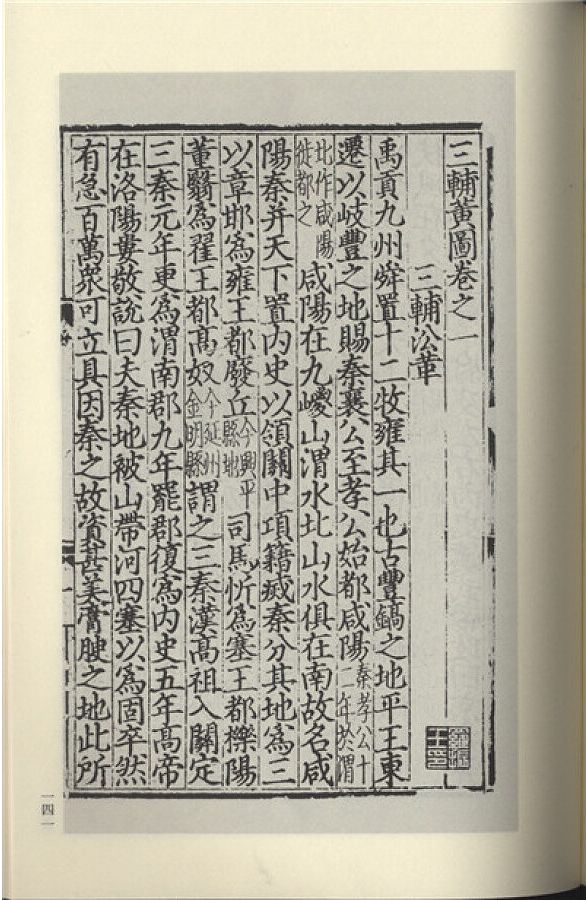 三輔黃圖卷之一
三輔㳂革
禹貢九州舜置十二牧雍其一也古豐鎬之地平王東
遷以岐豐之地賜秦襄公至孝公始都咸陽秦孝公十二年於渭
北作咸陽徙都之咸陽在九嵕山渭水北山水俱在南故名咸
陽秦并天下置内史以領關中項籍滅秦分其地爲三
以章邯爲雍王都廢丘今興平縣地司馬忻爲塞王都櫟陽
董翳爲翟王都高奴今延州金明縣謂之三秦漢高祖入關定
三秦元年更爲渭南郡九年罷郡復爲内史五年高帝
在洛陽婁敬說曰夫秦地被山帶河四塞以爲固卒然
有急百萬衆可立具因秦之故資甚美膏腴之地此所
一四一